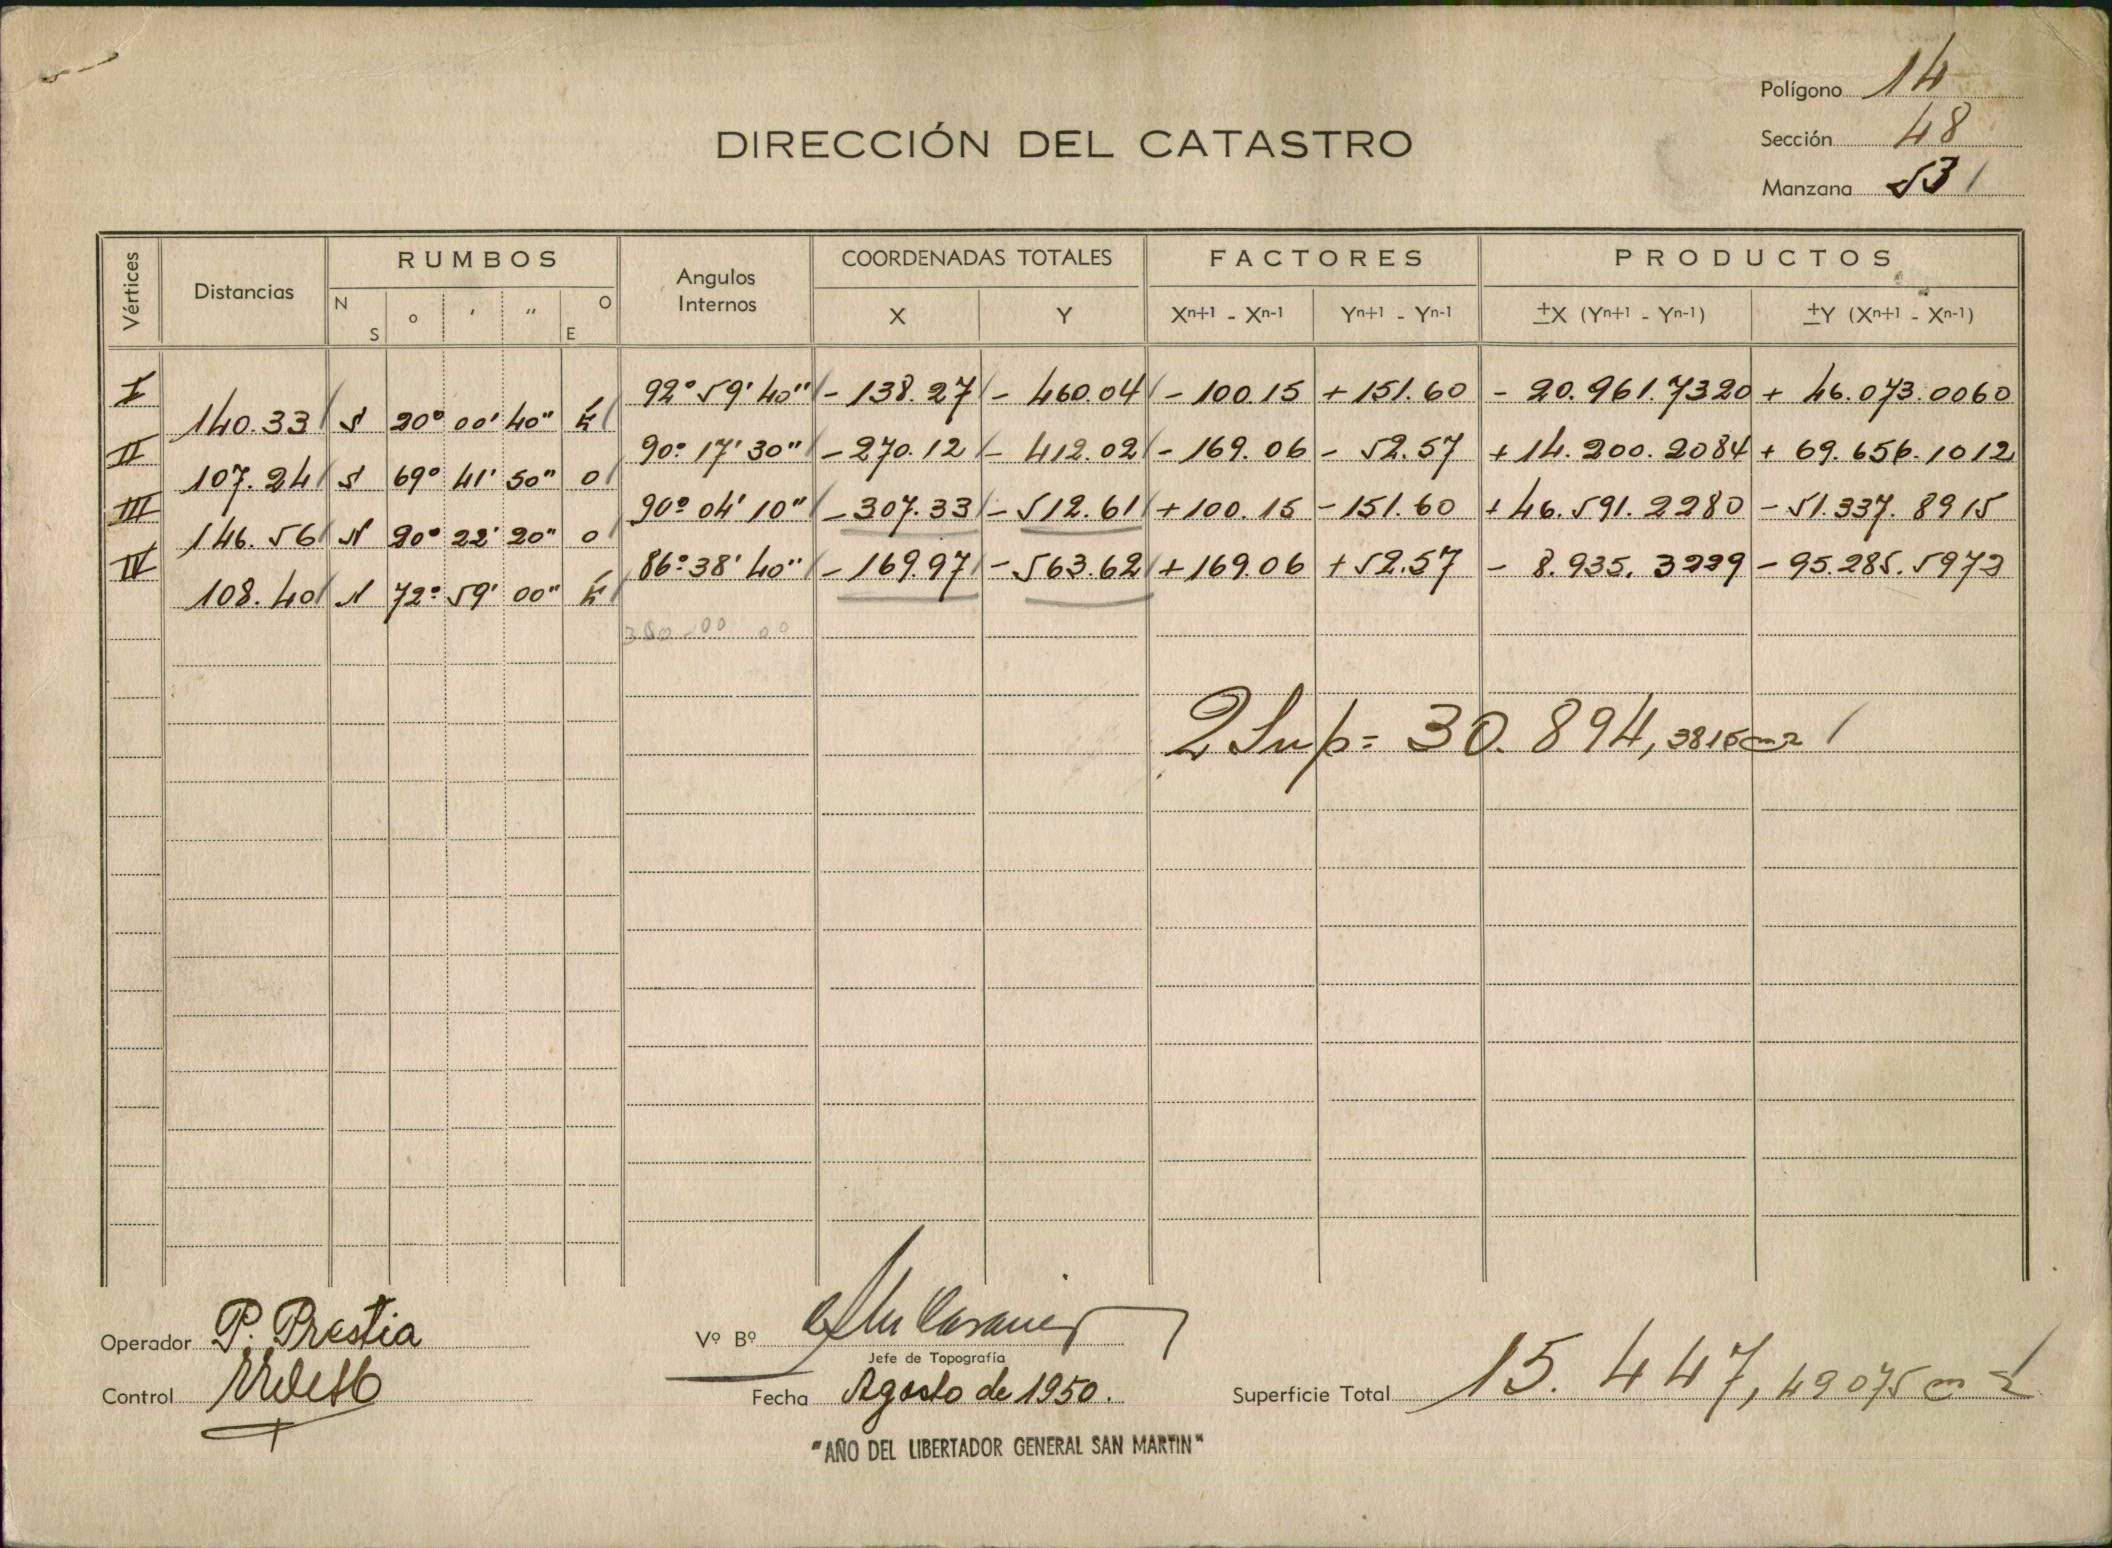 Polígono 14
DIRECCIÓN DEL CATASTRO
Sección 48
Manzana 53
Vértices Distancias RUMBOS Angulos Internos COORDENADAS TOTALES FACTORES PRODUCTOS
N S o ' " O E X Y Xn+1 - Xn-1 Yn+1 - Yn-1 ±X (Yn+1 - Yn-1) ±Y (Xn+1 - Xn-1)
I 92° 59' 40" - 138.27 - 460.04 - 100.15 + 151.60 - 20.961.7320 + 46.073.0060
140.33 S 20° 00' 40" E
II 90° 17' 30" - 270.12 - 412.02 - 169.06 - 52.57 + 14.200.2084 + 69.656.1012
107.24 S 69° 41' 50" O
III 90° 04' 10" - 307.33 - 512.61 + 100.15 - 151.60 + 46.591.2280 - 51.337.8915
146.56 N 20° 22' 20" O
IV 86° 38' 40" - 169.97 - 563.62 + 169.06 + 52.57 - 8.935.3229 - 95.285.5972
108.40 N 72° 59' 00" E
360-00 00
2 Sup = 30.894,3815 m2
Operador P. Prestia
Vº Bº
Jefe de Topografía
Control
Fecha Agosto de 1950.
Superficie Total 15.447,49075 m2
"AÑO DEL LIBERTADOR GENERAL SAN MARTIN"